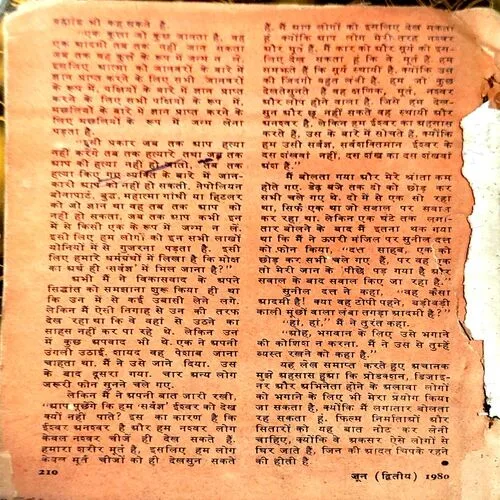 ब्रह्मांड भी कह सकते हैं.
"एक कुत्ता जो कुछ जानता है, वह
एक आदमी तब तक नहीं जान सकता
जब तक वह कुत्ते के रूप में जन्म न ले.
इसलिए आत्मा को जानवरों के बारे में
ज्ञान प्राप्त करने के लिए सभी जानवरों
के रूप में, पक्षियों के बारे में ज्ञान प्राप्त
करने के लिए सभी पक्षियों के रूप में,
मछलियों के बारे में ज्ञान प्राप्त करने के
लिए मछलियों के रूप में जन्म लेना
पड़ता है.
"इसी प्रकार जब तक आप हत्या
नहीं करेंगे तब तक हत्यारे तथा जब तक
आप की हत्या नहीं हो जाती, तब तक
हत्या किए गए व्यक्ति के बारे में जान-
कारी आप को नहीं हो सकती. नेपोलियन
बोनापार्ट, बुद्ध, महात्मा गांधी या हिटलर
को जो ज्ञान था वह तब तक आप को
नहीं हो सकता, जब तक आप कभी इन
में से किसी एक के रूप में जन्म न लें.
इसी लिए हम लोगों को इन सभी लाखों
योनियों में से गुजरना पड़ता है. इसी
लिए हमारे धर्मग्रंथों में लिखा है कि मोक्ष
का अर्थ ही 'सर्वज्ञ' में मिल जाना है?"
अभी मैं ने विकासवाद के अपने
सिद्धांत को समझाना शुरू किया ही था
कि उन में से कई उबासी लेने लगे.
लेकिन मैं ऐसी निगाह से उन की तरफ
देख रहा था कि वे वहां से उठने का
साहस नहीं कर पा रहे थे. लेकिन उन
में कुछ अपवाद भी थे. एक ने अपनी
उंगली उठाई. शायद वह पेशाब जाना
चाहता था. मैं ने उसे जाने दिया. उस
के बाद दूसरा गया. चार अन्य लोग
जरूरी फोन सुनने चले गए.
लेकिन मैं ने अपनी बात जारी रखी,
"आप पूछेंगे कि हम 'सर्वज्ञ' ईश्वर को देख
क्यों नहीं पाते? इस का कारण है कि
ईश्वर अनश्वर है और हम नश्वर लोग
केवल नश्वर चीजें ही देख सकते हैं.
हमारा शरीर मूर्त है, इसलिए हम लोग
केवल मूर्त चीजों को ही देखसुन सकते
210
हैं. मैं आप लोगों को इसलिए देख सकता
हूं क्योंकि आप लोग मेरी तरह नश्वर
और मूर्त हैं. मैं कार को और सूर्य को इस-
लिए देख सकता हूं कि वे मूर्त हैं. हम
समझते हैं कि सूर्य स्थायी है, क्योंकि उस
की जिंदगी में हम नहीं हैं. हम जो कुछ
देखतेसुनते हैं वह क्षणिक, मूर्त, नश्वर
और लोप होने वाला है. जिसे हम देख-
सुन और छू नहीं सकते वह स्थायी और
अनश्वर है. लेकिन हम ईश्वर का अहसास
करते हैं, उस के बारे में सोचते हैं, क्योंकि
हम उसी सर्वज्ञ, सर्वशक्तिमान ईश्वर के
दस शंखवां नहीं, दस शंख का दस शंखवां
अंश हैं."
मैं बोलता गया और मेरे श्रोता कम
होते गए. डेढ़ बजे तक दो को छोड़ कर
सभी चले गए थे. दो में से एक सो रहा
था, सिर्फ एक था जो सवाल पर सवाल
कर रहा था. लेकिन एक घंटे तक लगा-
तार बोलने के बाद मैं इतना थक गया
था कि मैं ने ऊपरी मंजिल पर सुनील दत्त
को फोन किया, "दत्त साहब, एक को
छोड़ कर सभी चले गए हैं, पर वह एक
तो मेरी जान के पीछे पड़ गया है और
सवाल के बाद सवाल किए जा रहा है."
सुनील दत्त ने कहा, "वह कैसा
आदमी है! क्या वह टोपी पहने, बड़ीबड़ी
काली मूंछों वाला लंबा तगड़ा आदमी है?"
"हां, हां," मैं ने तुरंत कहा.
"ओह, भगवान के लिए उसे भगाने
की कोशिश न करना. मैं ने उस से तुम्हें
व्यस्त रखने को कहा है."
यह लेख समाप्त करते हुए अचानक
मुझे अहसास हुआ कि प्रोडक्शन, डिजाइ-
नर और अभिनेता होने के अलावा लोगों
को भगाने के लिए भी मेरा प्रयोग किया
जा सकता है, क्योंकि मैं लगातार बोलता
रह सकता हूं. फिल्म निर्माताओं और
सितारों को यह बात नोट कर लेनी
चाहिए, क्योंकि वे अकसर ऐसे लोगों से
घिर जाते हैं, जिन की आदत चिपके रहने
की होती है. ●
जून (द्वितीय) 1980